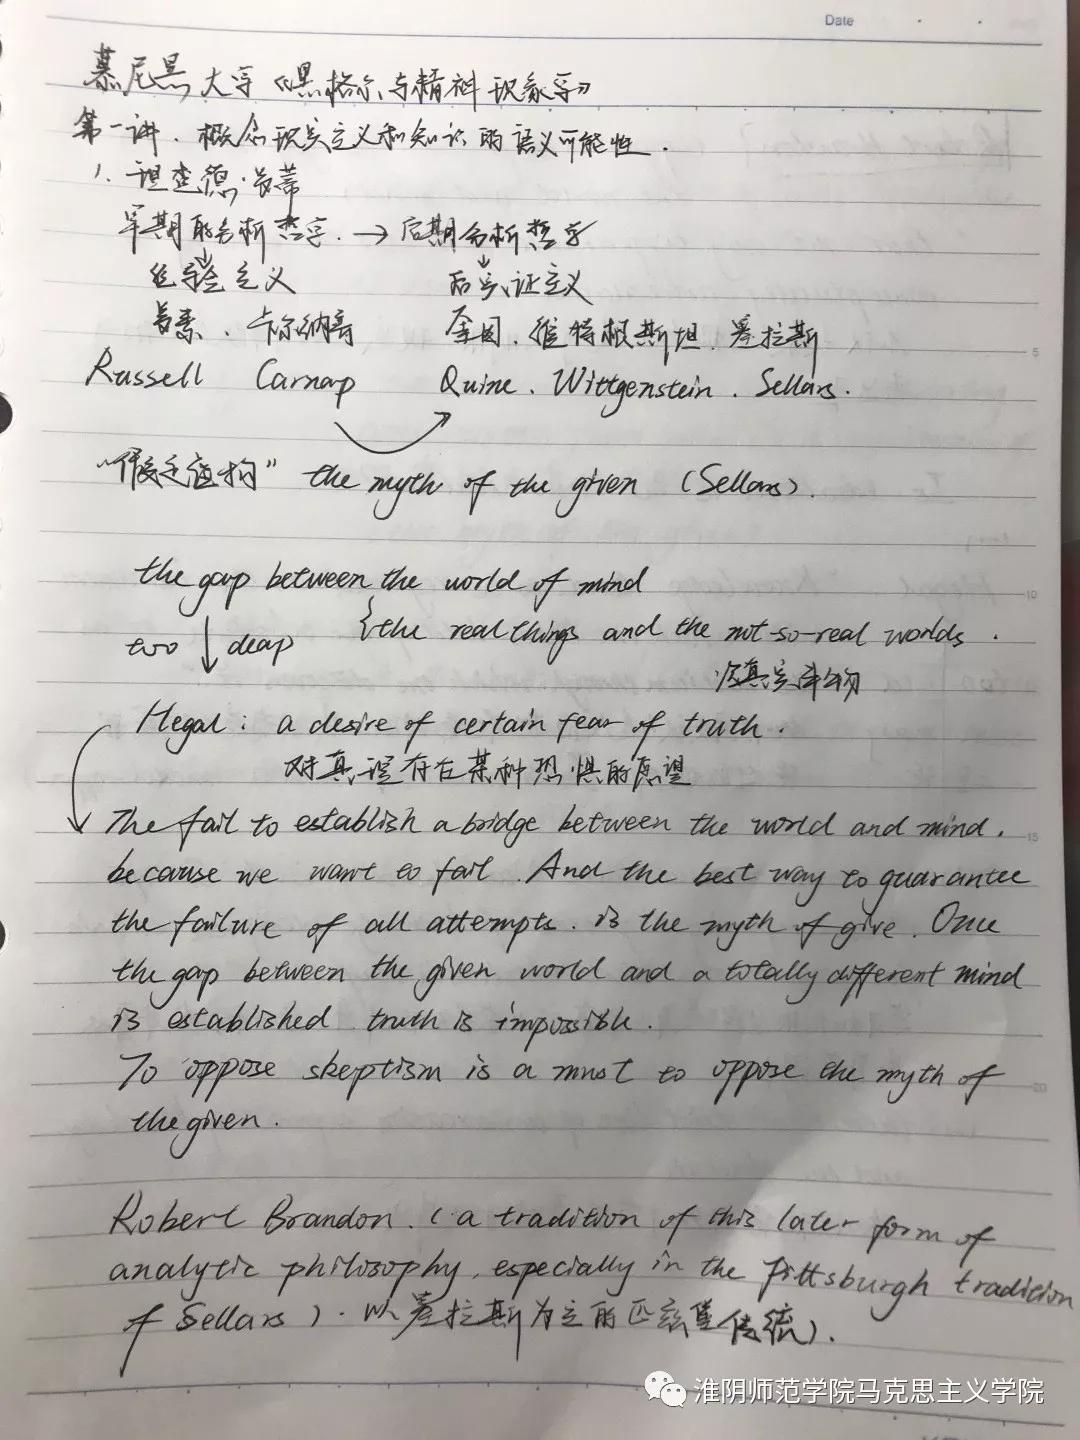 Date
慕尼黑大学《黑格尔与精神现象学》
第一讲. 概念现实主义和知识的语义可能性.
1. 坦查德·
早期的分析哲学. → 后期分析哲学
经验主义 后实证主义
罗素、卡尔纳普 奎因、维特根斯坦、塞拉斯
Russell Carnap Quine. Wittgenstein. Sellars.
“ 虚构” the myth of the given (Sellars).
the gap between the world of mind
too deep {the real things and the not-so-real worlds.
次真实事物
Hegal: a desire of certain fear of truth.
对真理存在某种恐惧的愿望
The fail to establish a bridge between the world and mind.
because we want to fail. And the best way to guarantee
the failure of all attempts. is the myth of give. Once
the gap between the given world and a totally different mind
is established truth is impossible.
To oppose skeptism is a must to oppose the myth of
the given.
Robert Brandon. (a tradition of this later form of
analytic philosophy, especially in the Pittsburgh tradition
of Sellars). 以塞拉斯为主的匹兹堡传统).
淮阴师范学院马克思主义学院